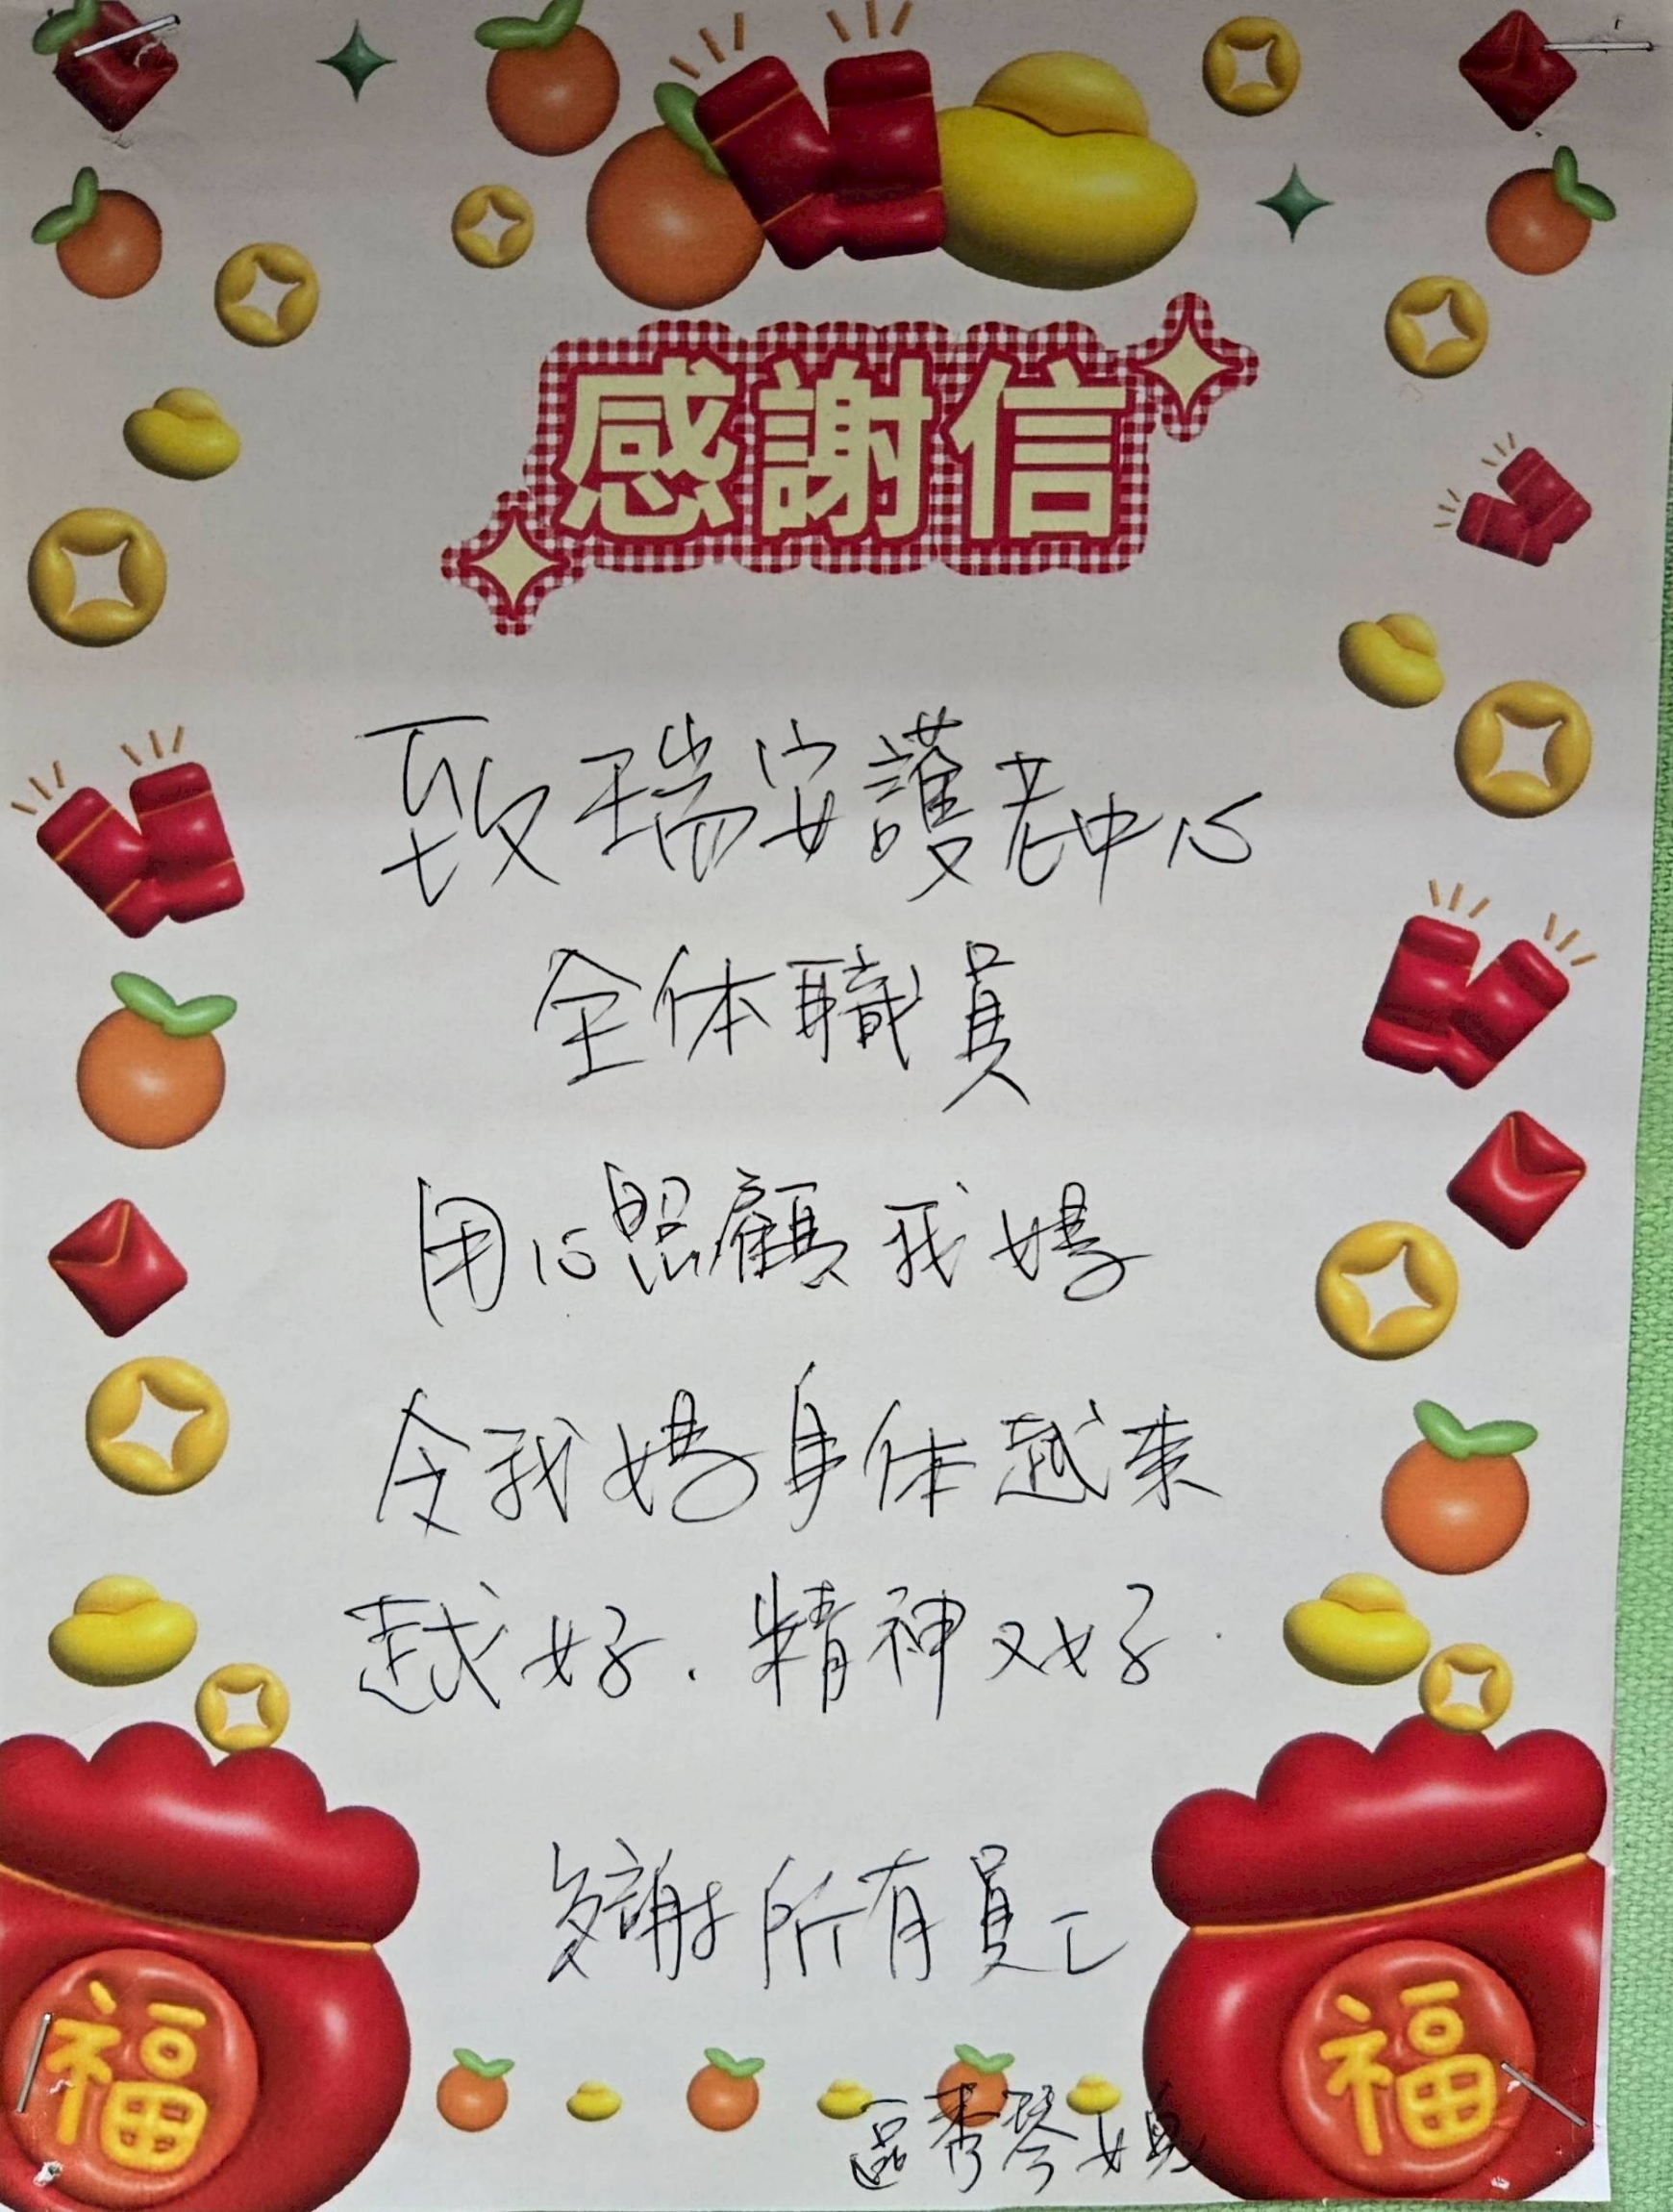 感謝信
致瑞安護老中心
全体職員
用心照顧我媽
令我媽身体越來
越好.精神又好.
多謝所有員工
區秀琴女兒
福
福